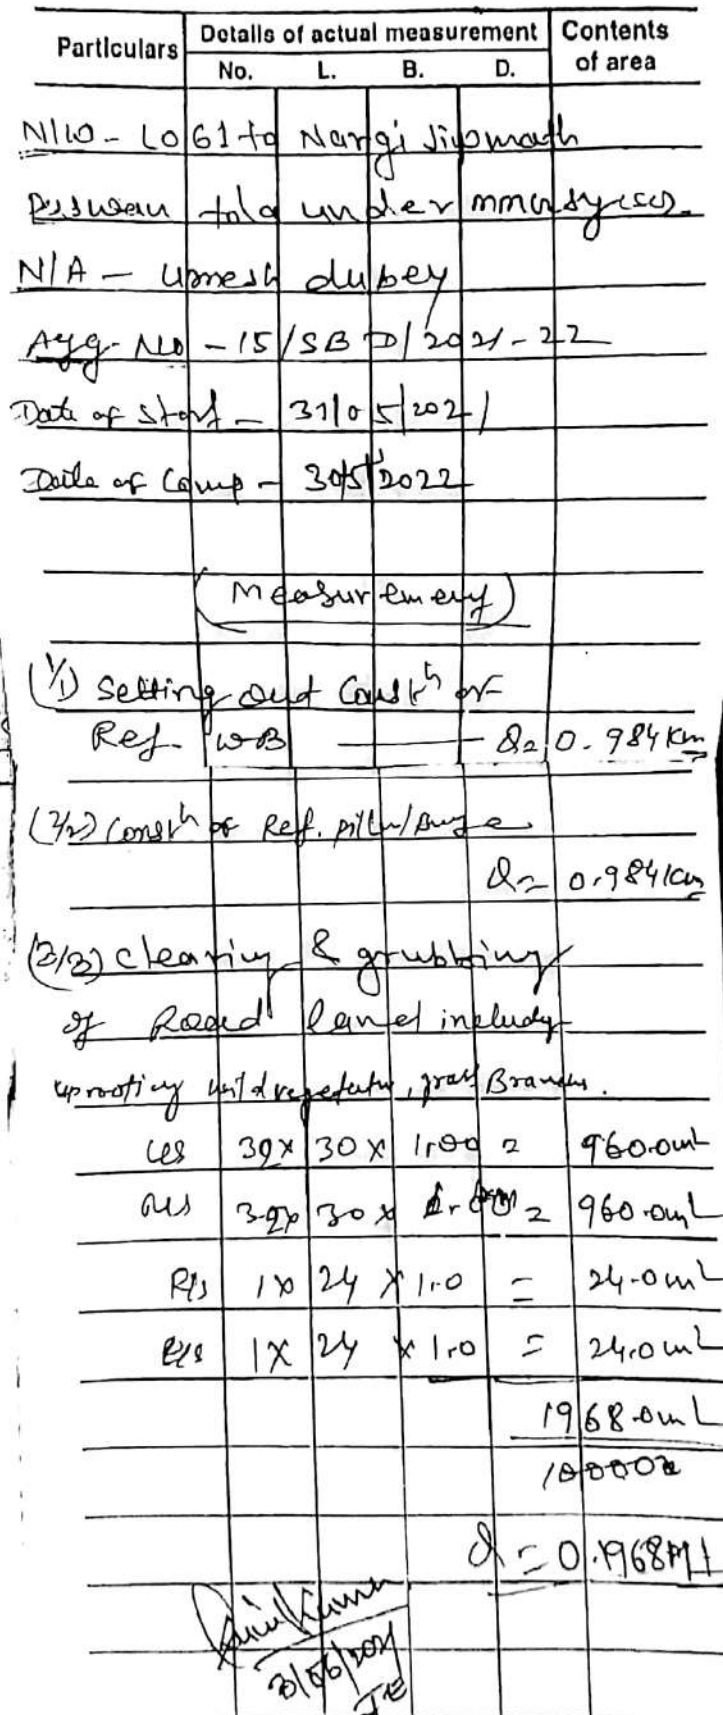 Particulars Details of actual measurement Contents of area
No. L. B. D.
N/W - L061 to Nargi Jivmath
tola under mmgsy (SC)
N/A - Umesh dubey
Agg. No - 15/SBD/2021-22
Date of Start - 31/05/2021
Date of Comp - 30/5/2022
(Measurement)
(1/1) Setting out Constn of
Ref. WB Q= 0.984 Km
(2/2) Constn of Ref. pillar
Q= 0.984 Km
(3/3) Clearing & grubbing
of Road land includg
uprooting wild vegetatn, grass Branches.
32 x 30 x 1.00 = 960.0m2
32x 30 x 1.00 = 960.0m2
R/s 1 x 24 x 1.0 = 24.0m2
1 x 24 x 1.0 = 24.0m2
1968.0m2
10000
Q = 0.1968
Kumar
JE